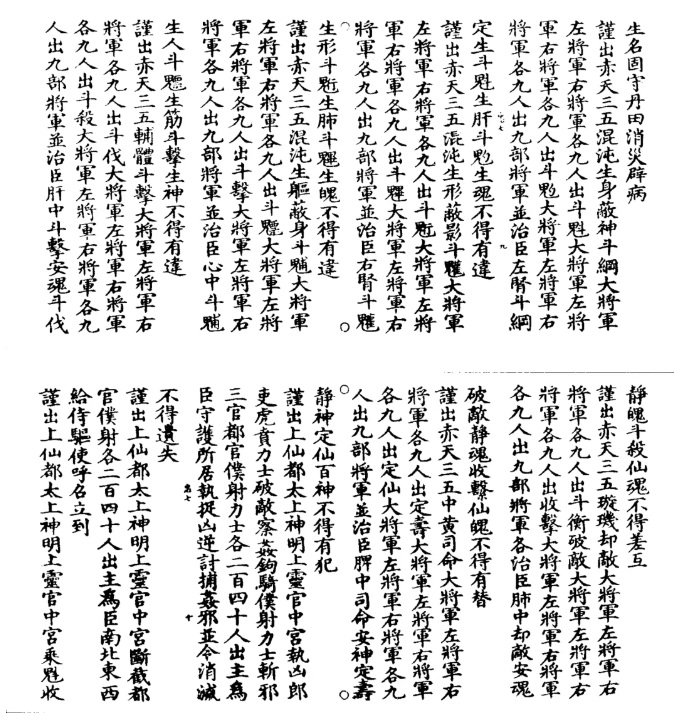 生名固守丹田消災辟病
謹出赤天三五混沌生身蔽神斗綱大將軍
左將軍右將軍各九人出斗魁大將軍左將
軍右將軍各九人出斗魁大將軍左將軍右
將軍各九人出九部將軍並治臣左腎斗綱
定生斗魁生肝斗魁生魂不得有違
謹出赤天三五混沌生形蔽影斗大將軍
左將軍右將軍各九人出斗大將軍左將
軍右將軍各九人出斗大將軍左將軍右
將軍各九人出九部將軍並治臣右腎斗
生形斗生肺斗生魄不得有違
謹出赤天三五混沌生軀蔽身斗大將軍
左將軍右將軍各九人出斗大將軍左將
軍右將軍各九人出斗擊大將軍左將軍右
將軍各九人出九部將軍並治臣心中斗
生人斗生筋斗擊生神不得有違
謹出赤天三五輔體斗擊大將軍左將軍右
將軍各九人出斗伐大將軍左將軍右將軍
各九人出斗殺大將軍左將軍右將軍各九
人出九部將軍並治臣肝中斗擊安魂斗伐
靜魄斗殺仙魂不得差互
謹出赤天三五璇璣却敵大將軍左將軍右
將軍各九人出斗衡破敵大將軍左將軍右
將軍各九人出收擊大將軍左將軍右將軍
各九人出九部將軍各治臣肺中却敵安魂
破敵靜魂收繫仙魄不得有替
謹出赤天三五中黃司命大將軍左將軍右
將軍各九人出定壽大將軍左將軍右將軍
各九人出定仙大將軍左將軍右將軍各九
人出九部將軍並治臣脾中司命安神定壽
靜神定仙百神不得有犯
謹出上仙都太上神明上靈官中宮執凶郎
吏虎賁力士破敵察姦鉤騎僕射力士斬邪
三官都官僕射力士各二百四十人出主為
臣守護所居執捉凶逆討捕姦邪並令消滅
不得遺失
謹出上仙都太上神明上靈官中宮斷截都
官僕射各二百四十人出主為臣南北東西
給侍驅使呼名立到
謹出上仙都太上神明上靈官中宮乘收